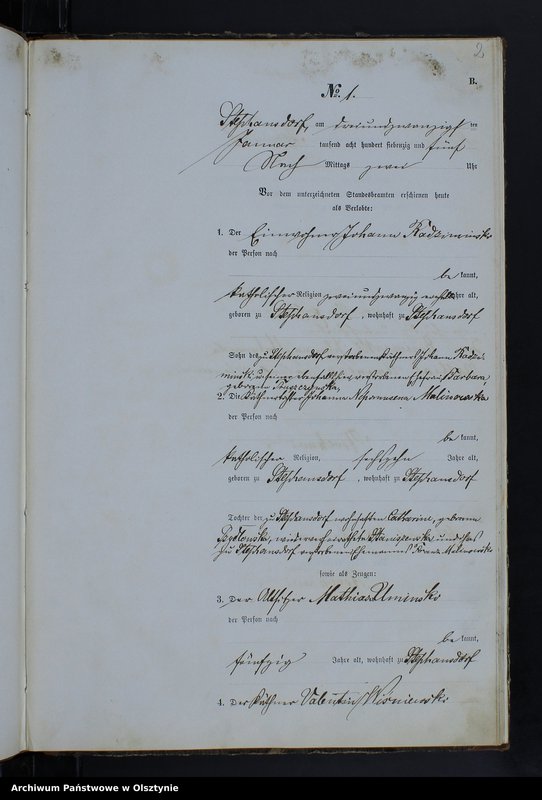 2
B.
№ 1.
Stephansdorf, am dreiundzwanzigsten
Januar tausend acht hundert siebenzig und fünf
Nach Mittags zwei Uhr
Vor dem unterzeichneten Standesbeamten erschienen heute
als Verlobte:
1. Der Einwohner Johann Radziminski
der Person nach
be kannt,
katholischer Religion, zweiundzwanzig Jahre alt,
geboren zu Stephansdorf, wohnhaft zu Stephansdorf
Sohn des zu Stephansdorf verstorbenen Käthners Johann Radzi-
minski und seiner ebenfalls verstorbenen Ehefrau Barbara,
geborene
2. Die Käthnertochter Johanna Malinowska
der Person nach
be kannt,
katholischer Religion, sechszehn Jahre alt,
geboren zu Stephansdorf, wohnhaft zu Stephansdorf
Tochter der zu Stephansdorf wohnhaften Catharina, geborene
wiederverehelichte und des
zu Stephansdorf verstorbenen Ehemannes Franz Malinowski
sowie als Zeugen:
3. Der Altsitzer Mathias Uminski
der Person nach
be kannt,
fünfzig Jahre alt, wohnhaft zu Stephansdorf
4. Der Käthner Valentin Wisniewski
Archiwum Państwowe w Olsztynie